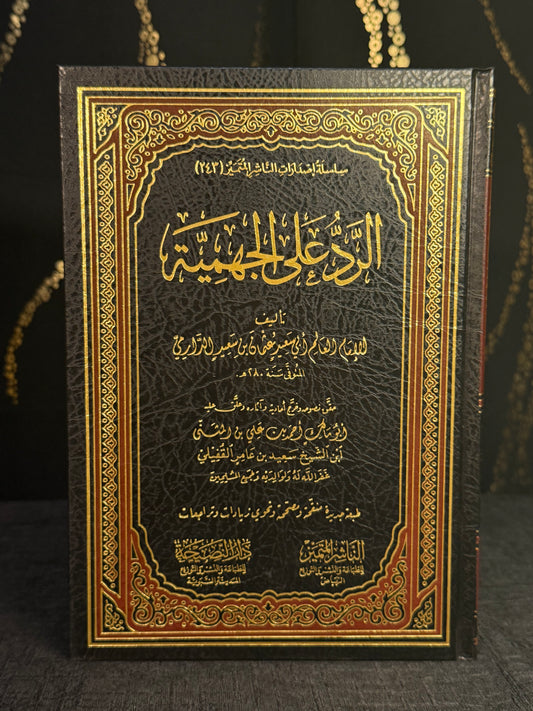 سلسلة إصدارات الناشر المتميز (٢٤٣)
الرَّدُّ عَلَى الجَهْمِيَّة
تأليف
للإمام العالم أبي سعيد عثمان بن سعيد الدارمي
المتوفى سنة ٢٨٠هـ.
حقق نصوصه وخرج أحاديثه وآثاره وعلق عليه
أحمد بن علي بن المثنى
ابن الشيخ سعيد بن عامر القفيلي
غفر الله له ولوالديه وجميع المسلمين
طبعة جديدة منقحة ومصححة وتحوي زيادات وتراجعات
الناشر المتميز
للطباعة والنشر والتوزيع
الرياض
دار النصيحة
للطباعة والنشر والتوزيع
المدينة النبوية